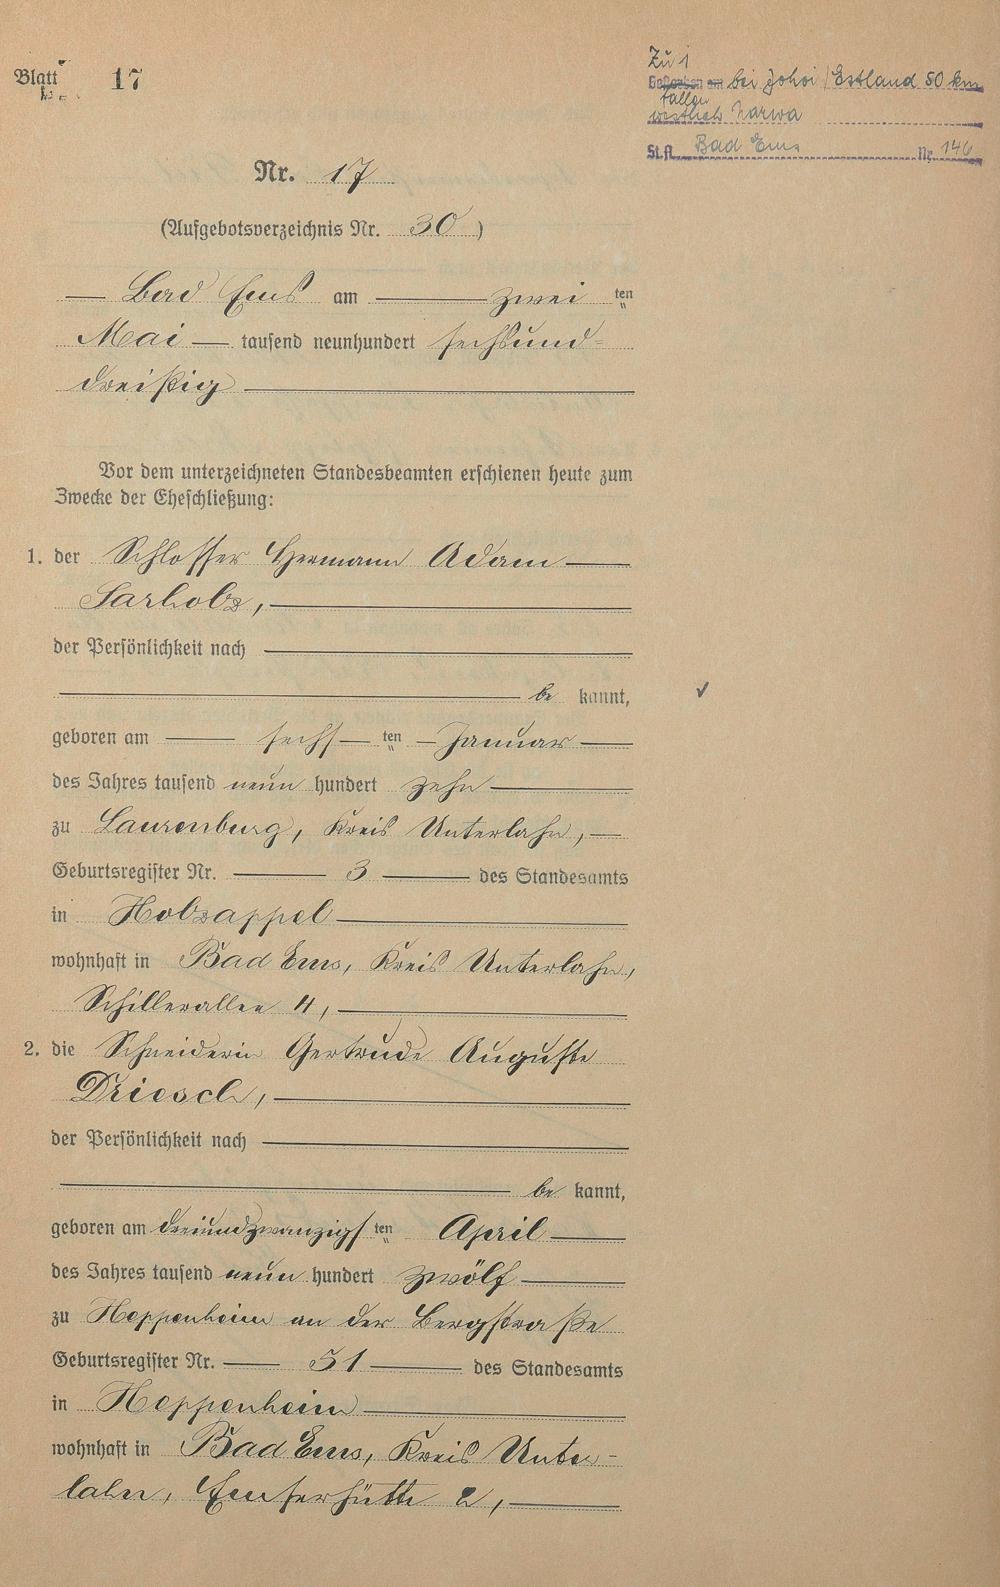 Blatt 17
Zu 1
Gestorben am bei Johvi / Estland 50 km
fallen
westlich Narwa
St.A. Bad Ems Nr. 146
Nr. 17
(Aufgebotsverzeichnis Nr. 30)
Bad Ems am zwei ten
Mai tausend neunhundert sechsund-
dreißig
Vor dem unterzeichneten Standesbeamten erschienen heute zum
Zwecke der Eheschließung:
1. der Schlosser Hermann Adam
Sarholz,
der Persönlichkeit nach
be kannt,
geboren am sechs ten Januar
des Jahres tausend neun hundert zehn
zu Laurenburg, Kreis Unterlahn,
Geburtsregister Nr. 3 des Standesamts
in Holzappel
wohnhaft in Bad Ems, Kreis Unterlahn,
Schillerallee 4,
2. die Schneiderin Gertrude Auguste
Driesch,
der Persönlichkeit nach
be kannt,
geboren am dreiundzwanzigs ten April
des Jahres tausend neun hundert zwölf
zu Heppenheim an der Bergstraße
Geburtsregister Nr. 51 des Standesamts
in Heppenheim
wohnhaft in Bad Ems, Kreis Unter-
lahn, Emserhütte 2,